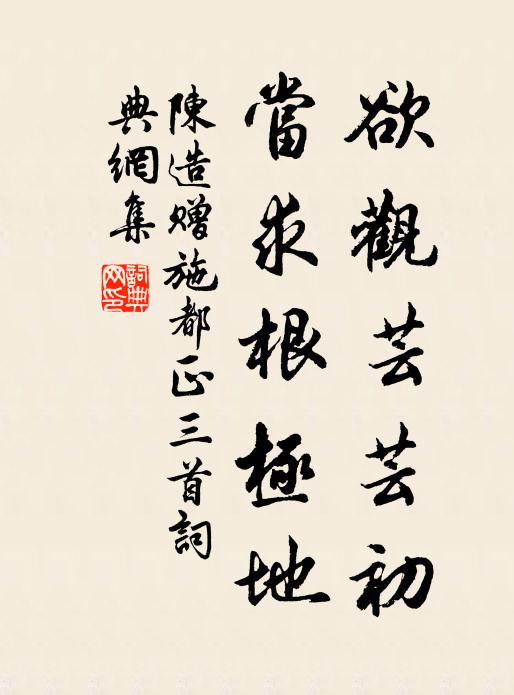 欲觀芸芸初
當求根極地
陳造贈施都正三首詞
典網集
詞典網印